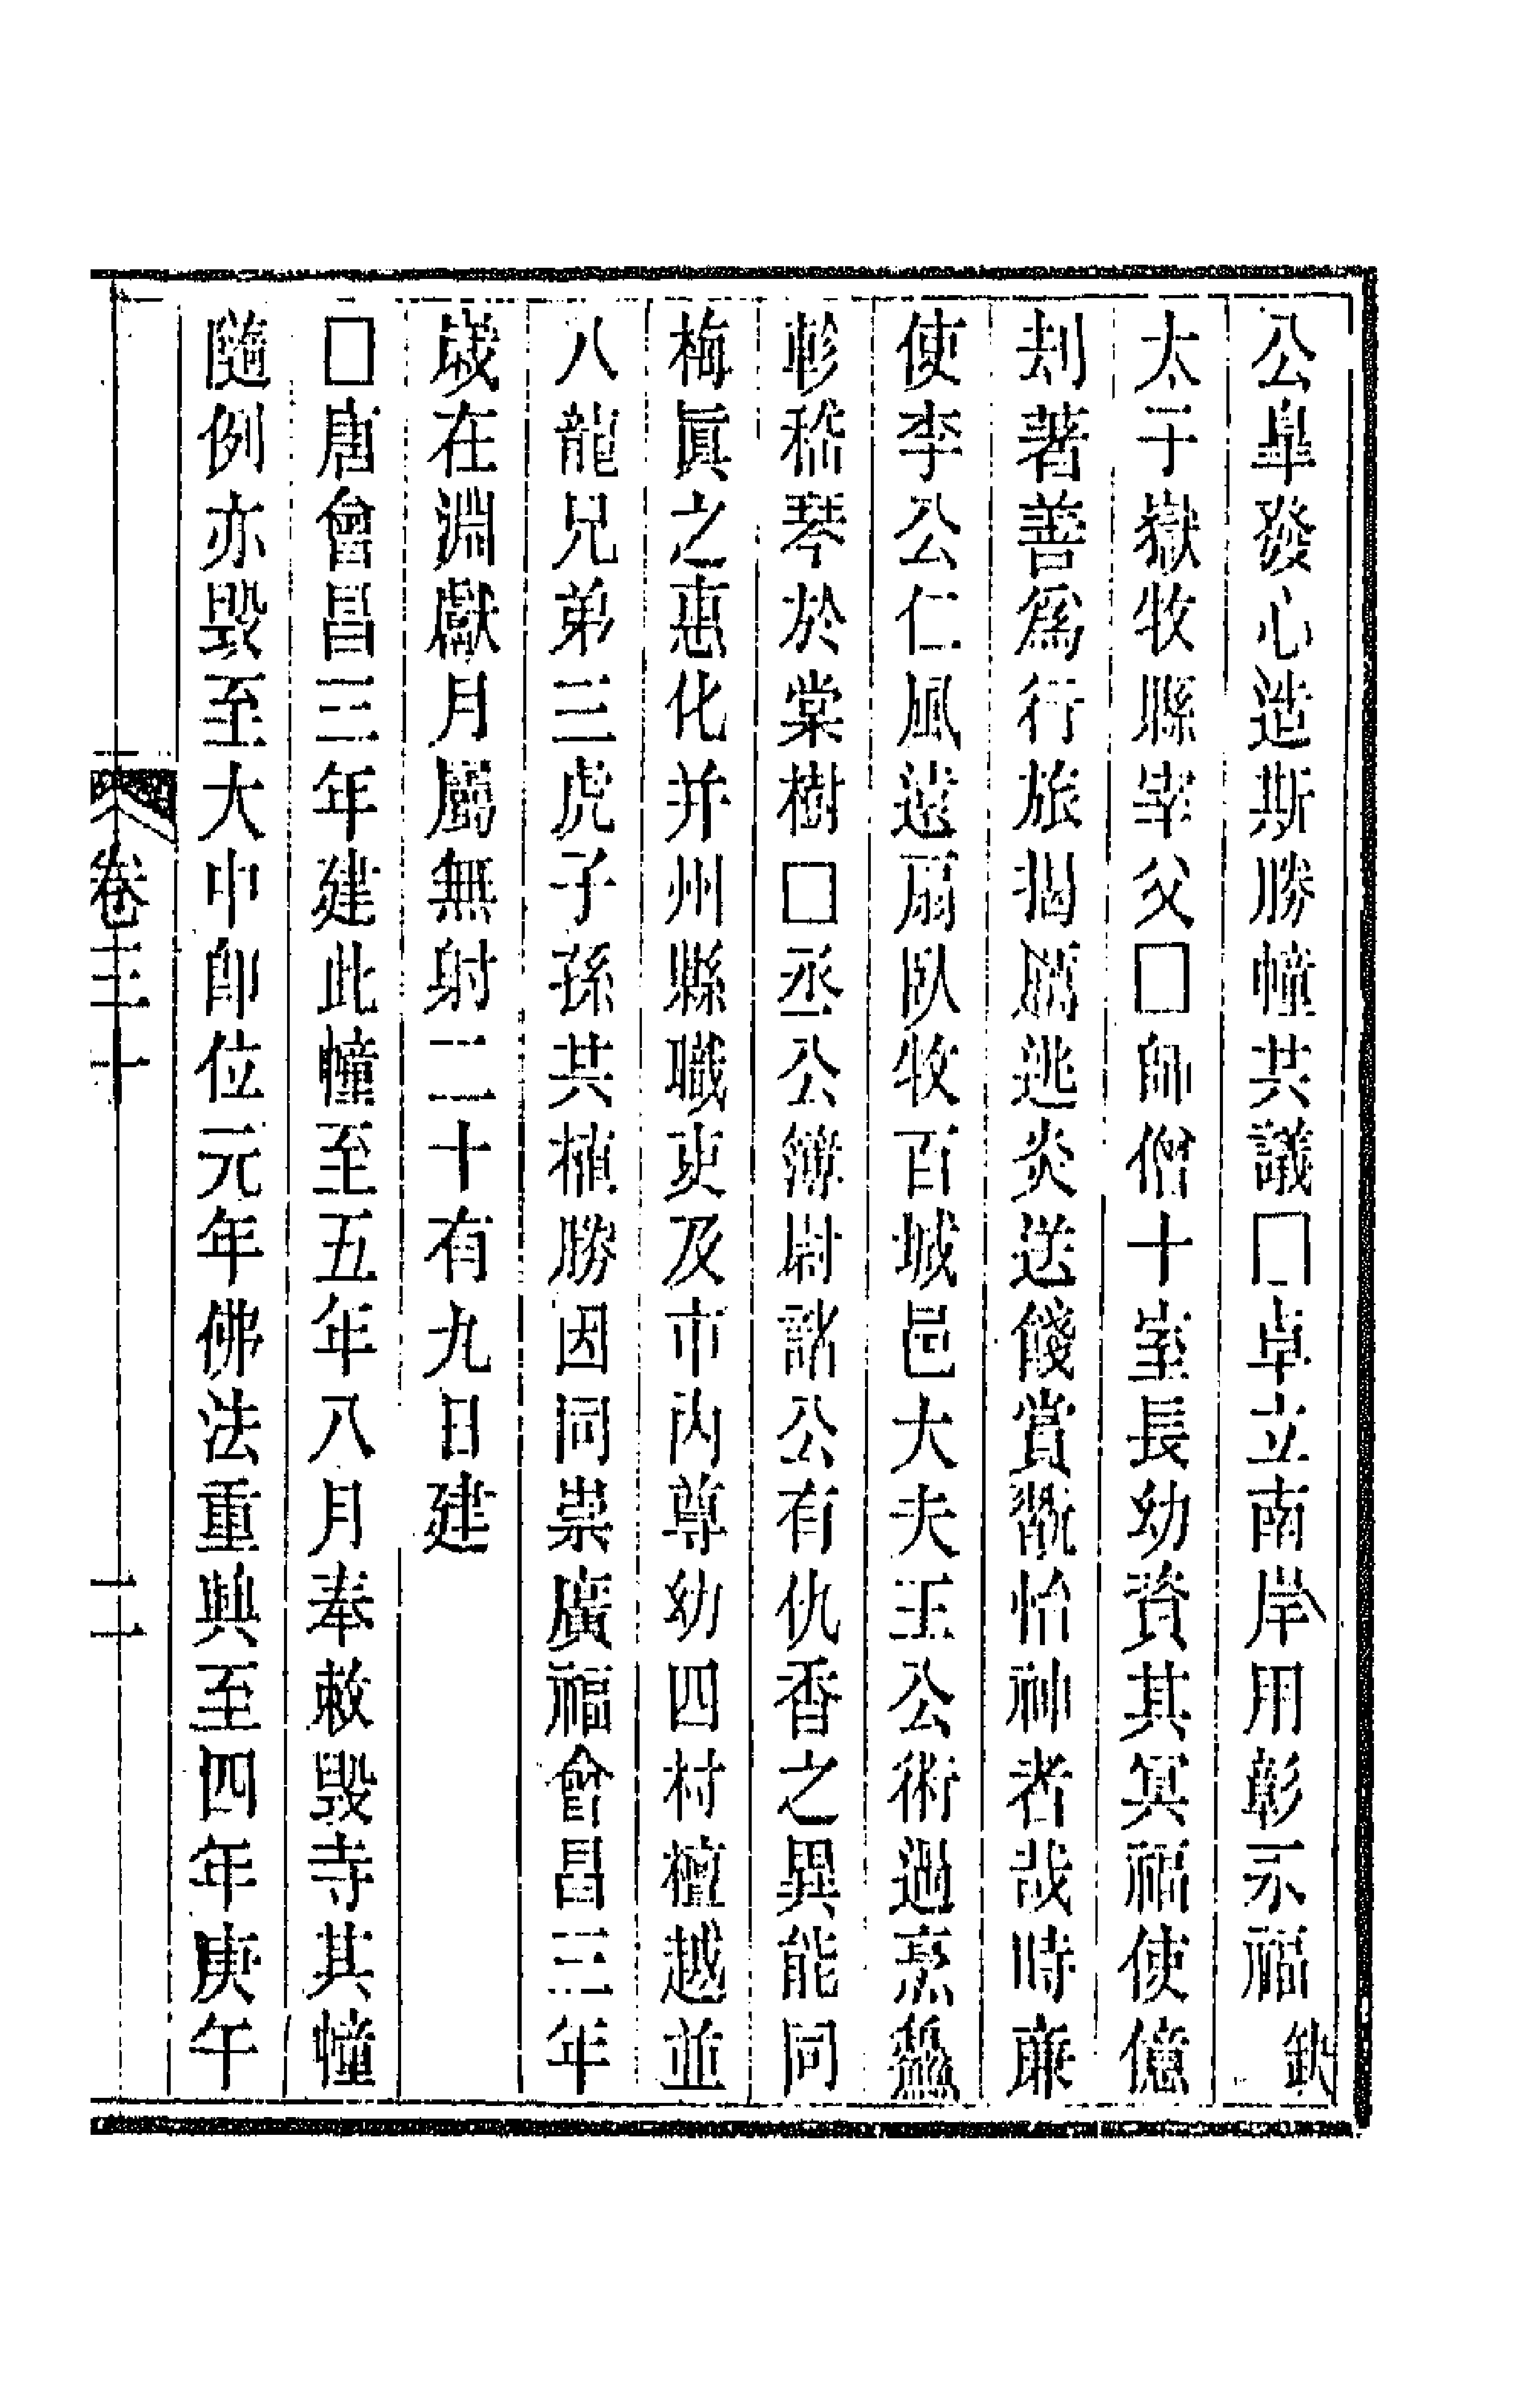 公皐發心造斯勝幢共議□卓立南岸用彰示福 缺
太子嶽牧縣宰父□師僧十室長幼資其冥福使億
刦著善爲行旅揭厲逃炎送餞賞翫怡神者哉時亷
使李公仁風遠扇臥牧百城邑大夫王公術過烹鱻
軫嵇琴於棠樹□丞公簿尉諸公有仇香之異能同
梅眞之惠化并州縣職吏及市內尊幼四村檀越並
八龍兄弟三虎子孫共植勝因同崇廣福會昌三年
歲在淵獻月屬無射二十有九日建
□唐會昌三年建此幢至五年八月奉敕毀寺其幢
隨例亦毀至大中卽位元年佛法重興至四年庚午
卷三十 二十